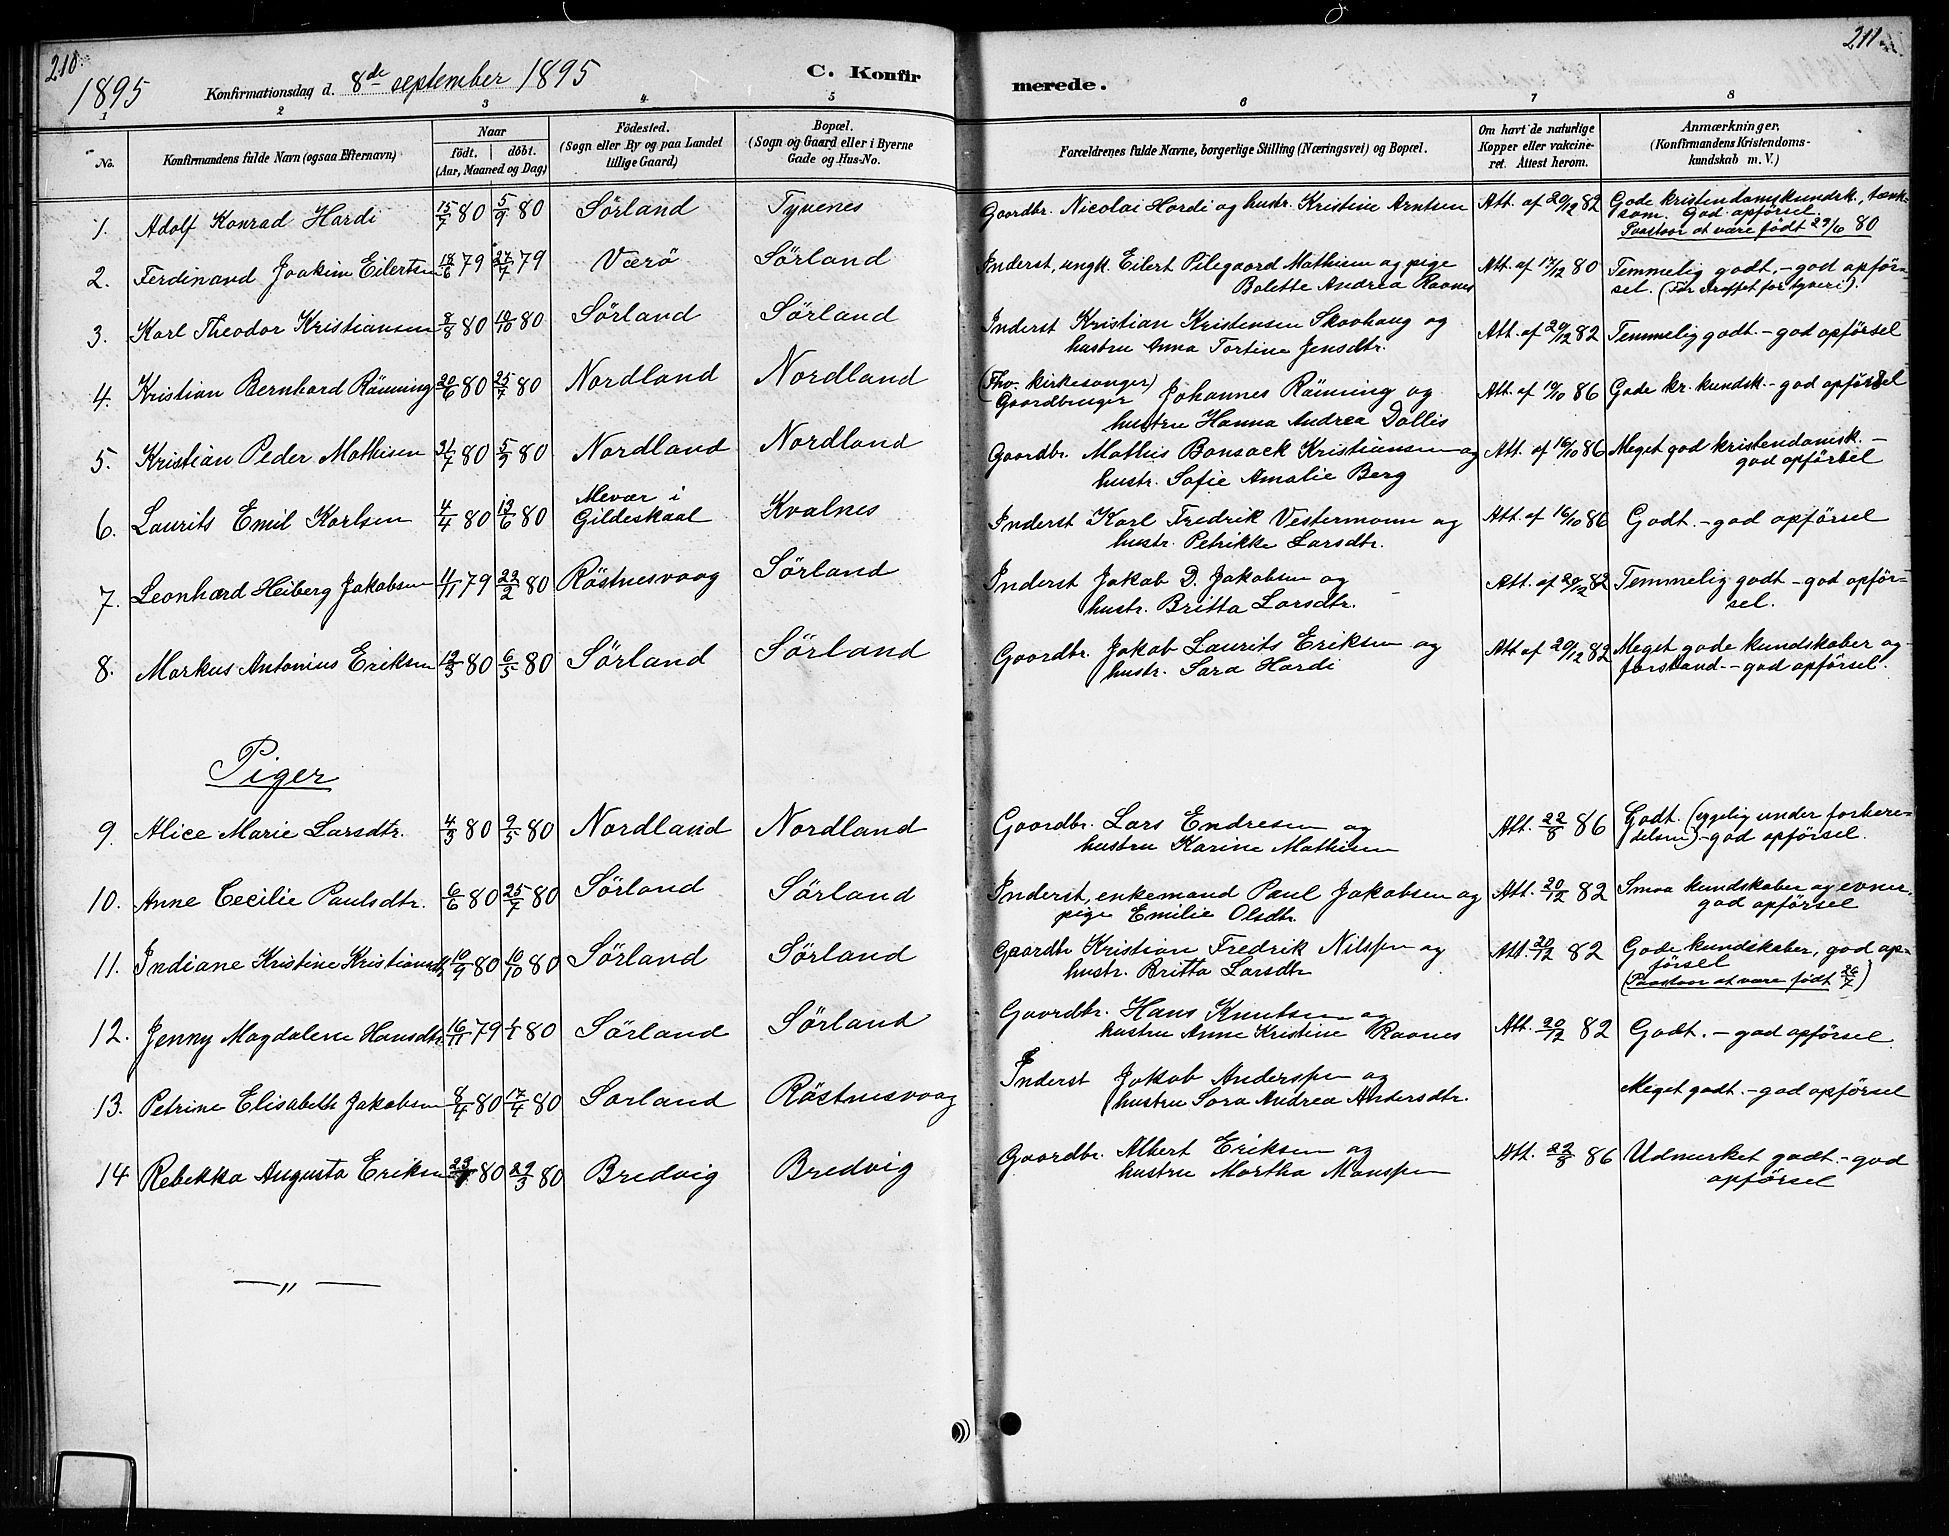 210.
211.
1895
Konfirmationsdag d. 8de september 1895
C. Konfir
merede.
1 2 3 4 5 6 7 8
No.
Konfirmandens fulde Navn (ogsaa Efternavn)
Naar
født. døbt.
(Aar, Maaned og Dag)
Fødested.
(Sogn eller By og paa Landet
tillige Gaard)
Bopæl.
(Sogn og Gaard eller i Byerne
Gade og Hus-No.
Forældrenes fulde Navne, borgerlige Stilling (Næringsvei) og Bopæl.
Om havt de naturlige
Kopper eller vakcine-
ret. Attest herom.
Anmærkninger.
(Konfirmandens Kristendoms-
kundskab m. V.)
1. Adolf Konrad Hardi 15/7 80 5/9 80 Sörland Tyvenes Gaardbr. Nicolai Hardi og hustr. Kristine Arntsen Att. af 20/12 82 Gode kristendomskundsk., tænk-
som. God opförsel.
Paastaar at være født 29/6 80
2. Ferdinand Joakim Eilertsen 18/6 79 27/7 79 Værö Sörland Inderst, ungk. Eilert Pilegaard Mathisen og pige
Bolette Andrea Raanes Att. af 17/12 80 Temmelig godt. - god opför-
sel. (Før straffet for tyveri).
3. Karl Theodor Kristiansen 8/8 80 10/10 80 Sörland Sörland Inderst Kristian Kristensen Skovhaug og
hustru Anna Tortine Jensdtr. Att. af 20/12 82 Temmelig godt. - god opførsel
4. Kristian Bernhard Rönning 20/6 80 25/7 80 Nordland Nordland (Fhv. kirkesanger)
Gaardbruger Johannes Rönning og
hustru Hanna Andrea Dallis Att. af 19/10 86 Gode kr. kundsk. - god opførsel
5. Kristian Peder Mathisen 31/7 80 5/9 80 Nordland Nordland Gaardbr. Mathis Bonsack Kristiansen og
hustr. Sofie Amalie Berg Att. af 16/10 86 Meget god kristendomsk. -
god opførsel
6. Laurits Emil Karlsen 4/4 80 13/6 80 Mevær i
Gildeskaal Kvalnes Inderst Karl Fredrik Vestermann og
hustr. Petrikke Larsdtr. Att. af 16/10 86 Godt. - god opførsel
7. Leonhard Heiberg Jakobsen 11/11 79 22/2 80 Röstnesvaag Sörland Inderst Jakob D. Jakobsen og
hustr. Britta Larsdtr. Att. af 20/12 82 Temmelig godt - god opför-
sel.
8. Markus Antonius Eriksen 19/3 80 6/5 80 Sörland Sörland Gaardbr. Jakob Laurits Eriksen og
hustr. Sara Hardi Att. af 20/12 82 Meget gode kundskaber og
forstand. - god opførsel.
Piger
9. Alice Marie Larsdtr. 4/3 80 9/5 80 Nordland Nordland Gaardbr. Lars Endresen og
hustru Karine Mathisen Att. 22/8 86 Godt. (sygelig under forbere-
delsen) - god opførsel.
10. Anne Cecilie Paulsdtr. 6/6 80 25/7 80 Sörland Sörland Inderst, enkemand Paul Jakobsen og
pige Emilie Olsdtr. Att. 20/12 82 Smaa kundskaber og evner.
god opførsel
11. Indiane Kristine Kristiansdtr. 10/9 80 10/10 80 Sörland Sörland Gaardbr Kristian Fredrik Nilssen og
hustr. Britta Larsdtr Att. 20/12 82 Gode kundskaber, god op-
førsel
(Paastaar at være født 26/7)
12. Jenny Magdalene Hansdtr. 16/11 79 4/1 80 Sörland Sörland Gaardbr. Hans Knutsen og
hustru Anne Kristine Raanes Att. 20/12 82 Godt. - god opførsel.
13. Petrine Elisabeth Jakobsen 8/4 80 17/4 80 Sørland Röstnesvaag Inderst Jakob Anderssen og
hustru Sara Andrea Andersdtr. Meget godt. - god opførsel
14 Rebekka Augusta Eriksen 80 29/3 80 Bredvig Bredvig Gaardbr. Albert Eriksen og
hustru Martha Monssen Att. 22/8 86 Udmerket godt. - god
opførsel
— „ —